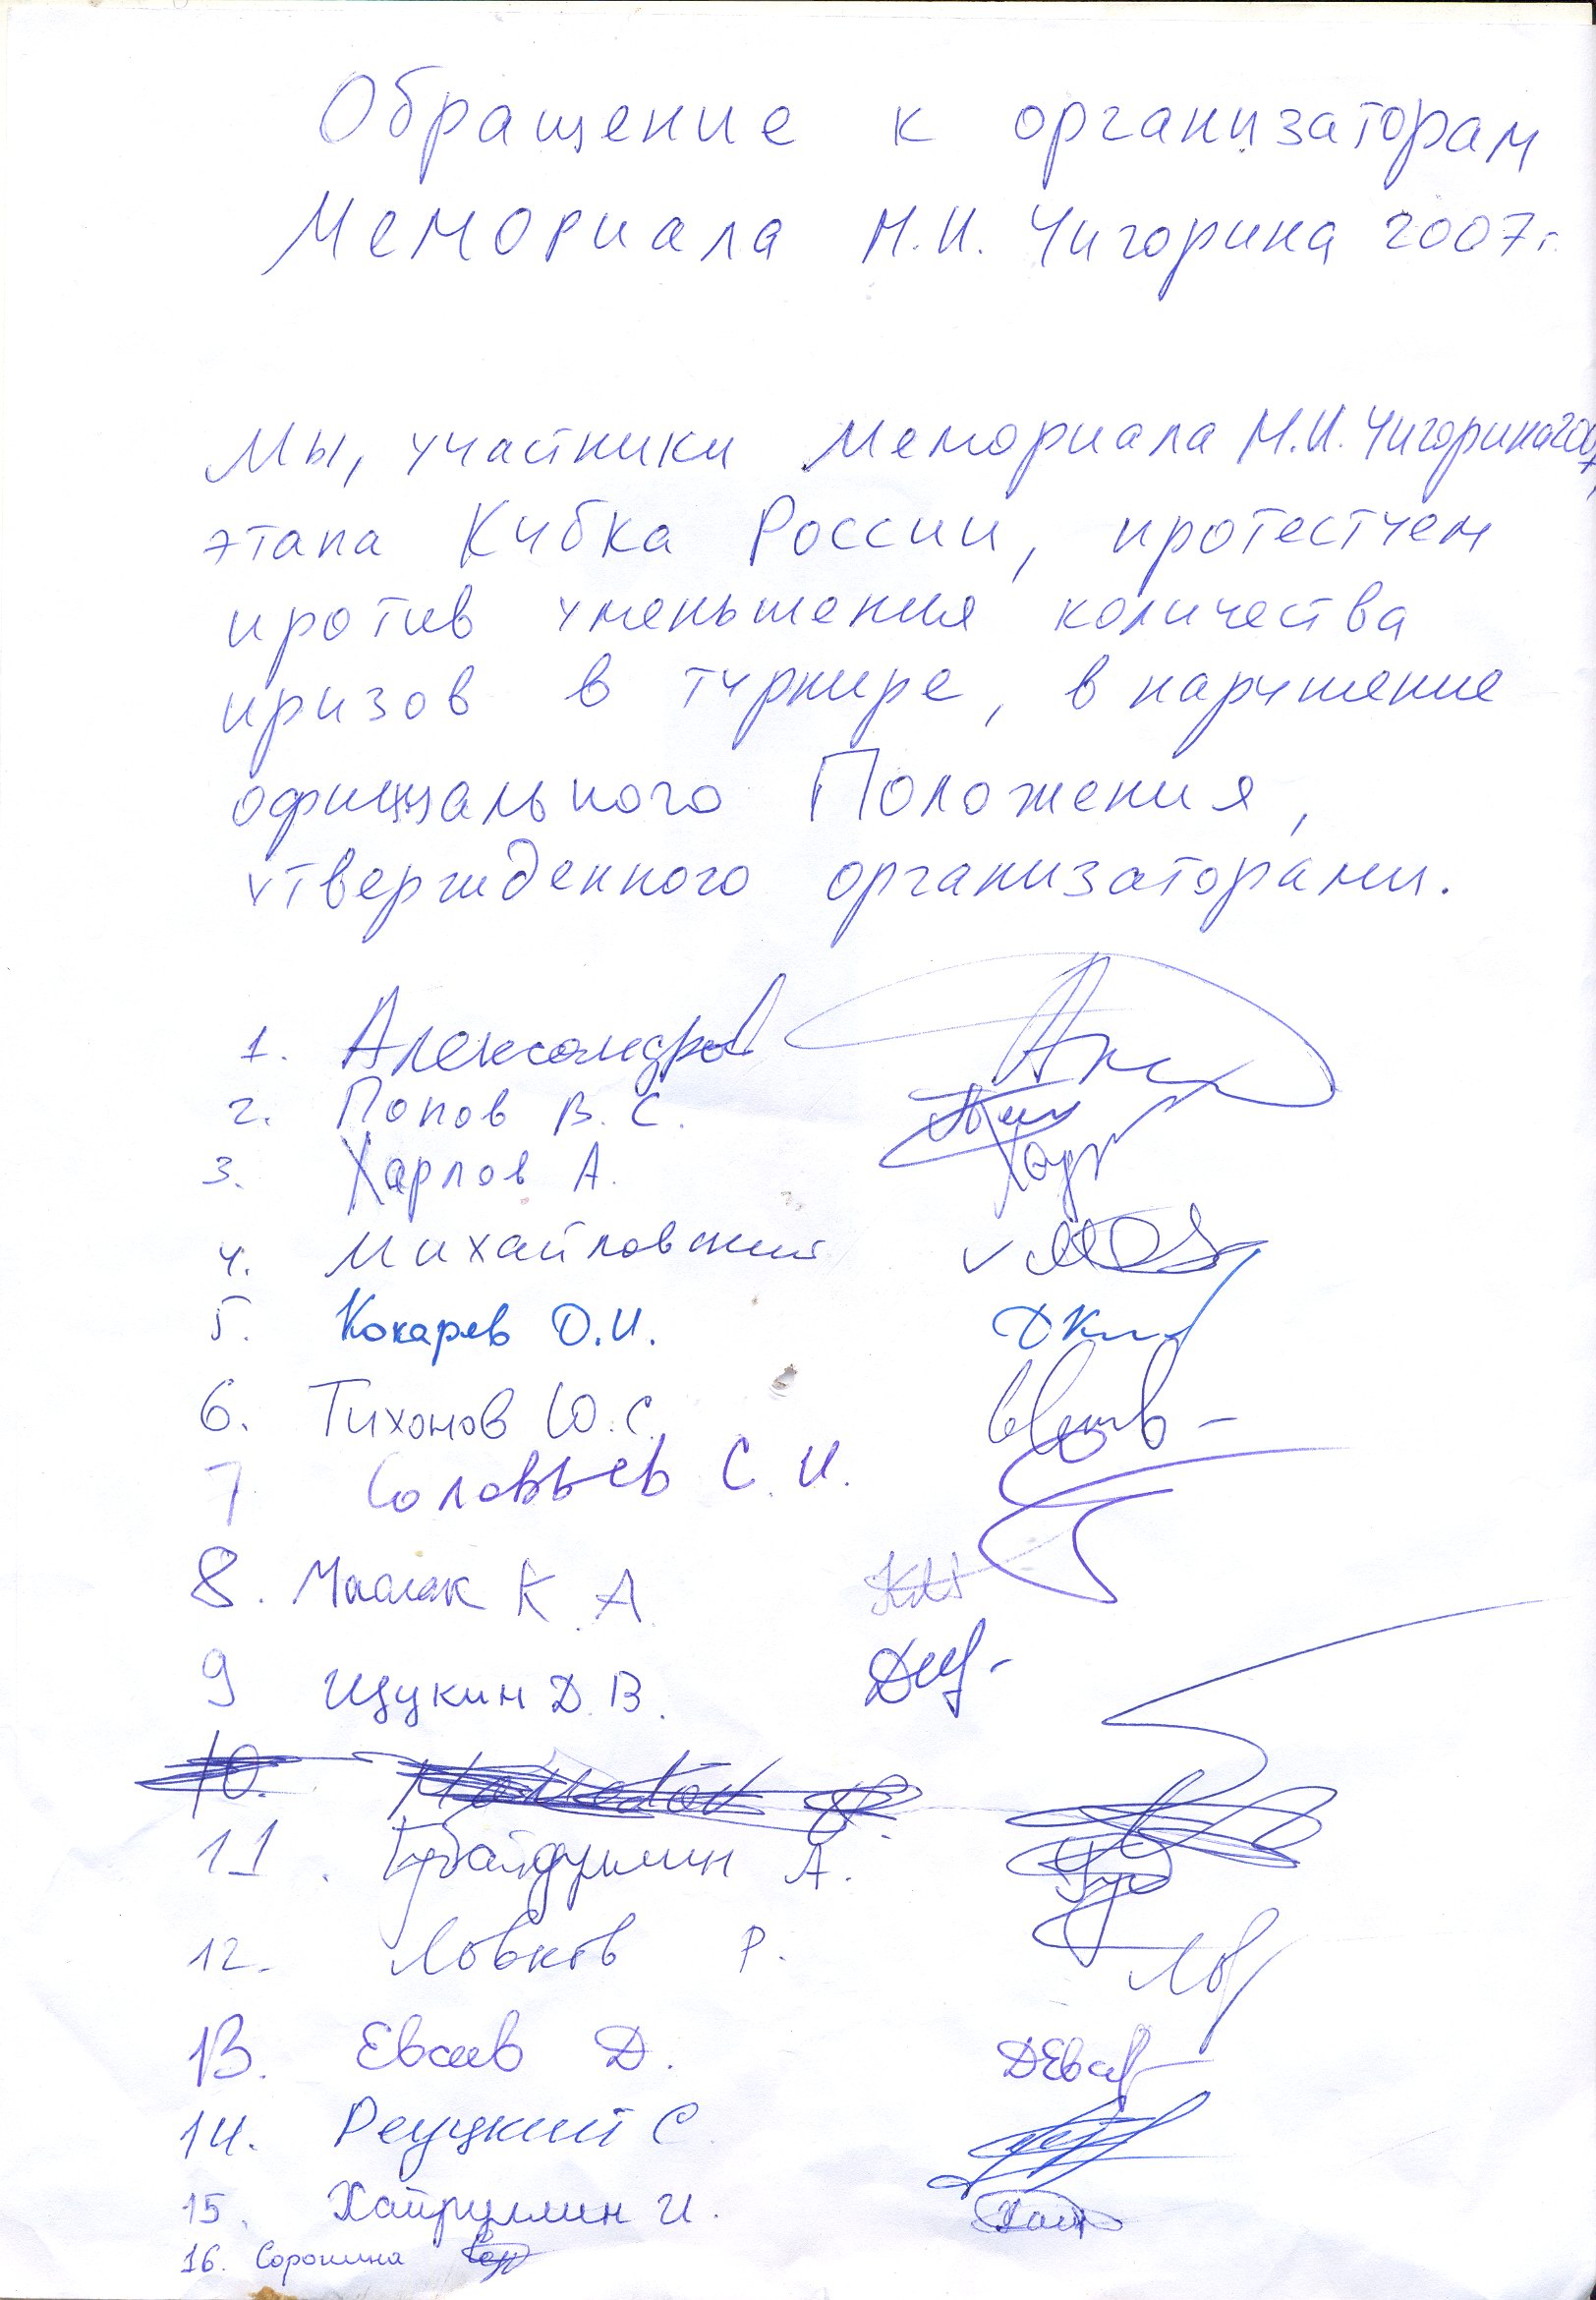 Обращение к организаторам
Мемориала М.И. Чигорина 2007г.
Мы, участники Мемориала М.И. Чигорина 2007,
этапа Кубка России, протестуем
против уменьшения количества
призов в турнире, в нарушение
официального Положения,
утвержденного организаторами.
1. Александров
2. Попов В.С.
3. Харлов А.
4. Михайловский
5. Кокарев Д.И.
6. Тихонов Ю.С.
7 Соловьев С.И.
8. К. А.
9 Щукин Д.В.
10.
11. Губайдуллин А.
12. Ловков Р.
13. Евсеев Д.
14. Реуцкий С.
15. Хайруллин И.
16. Сорокина